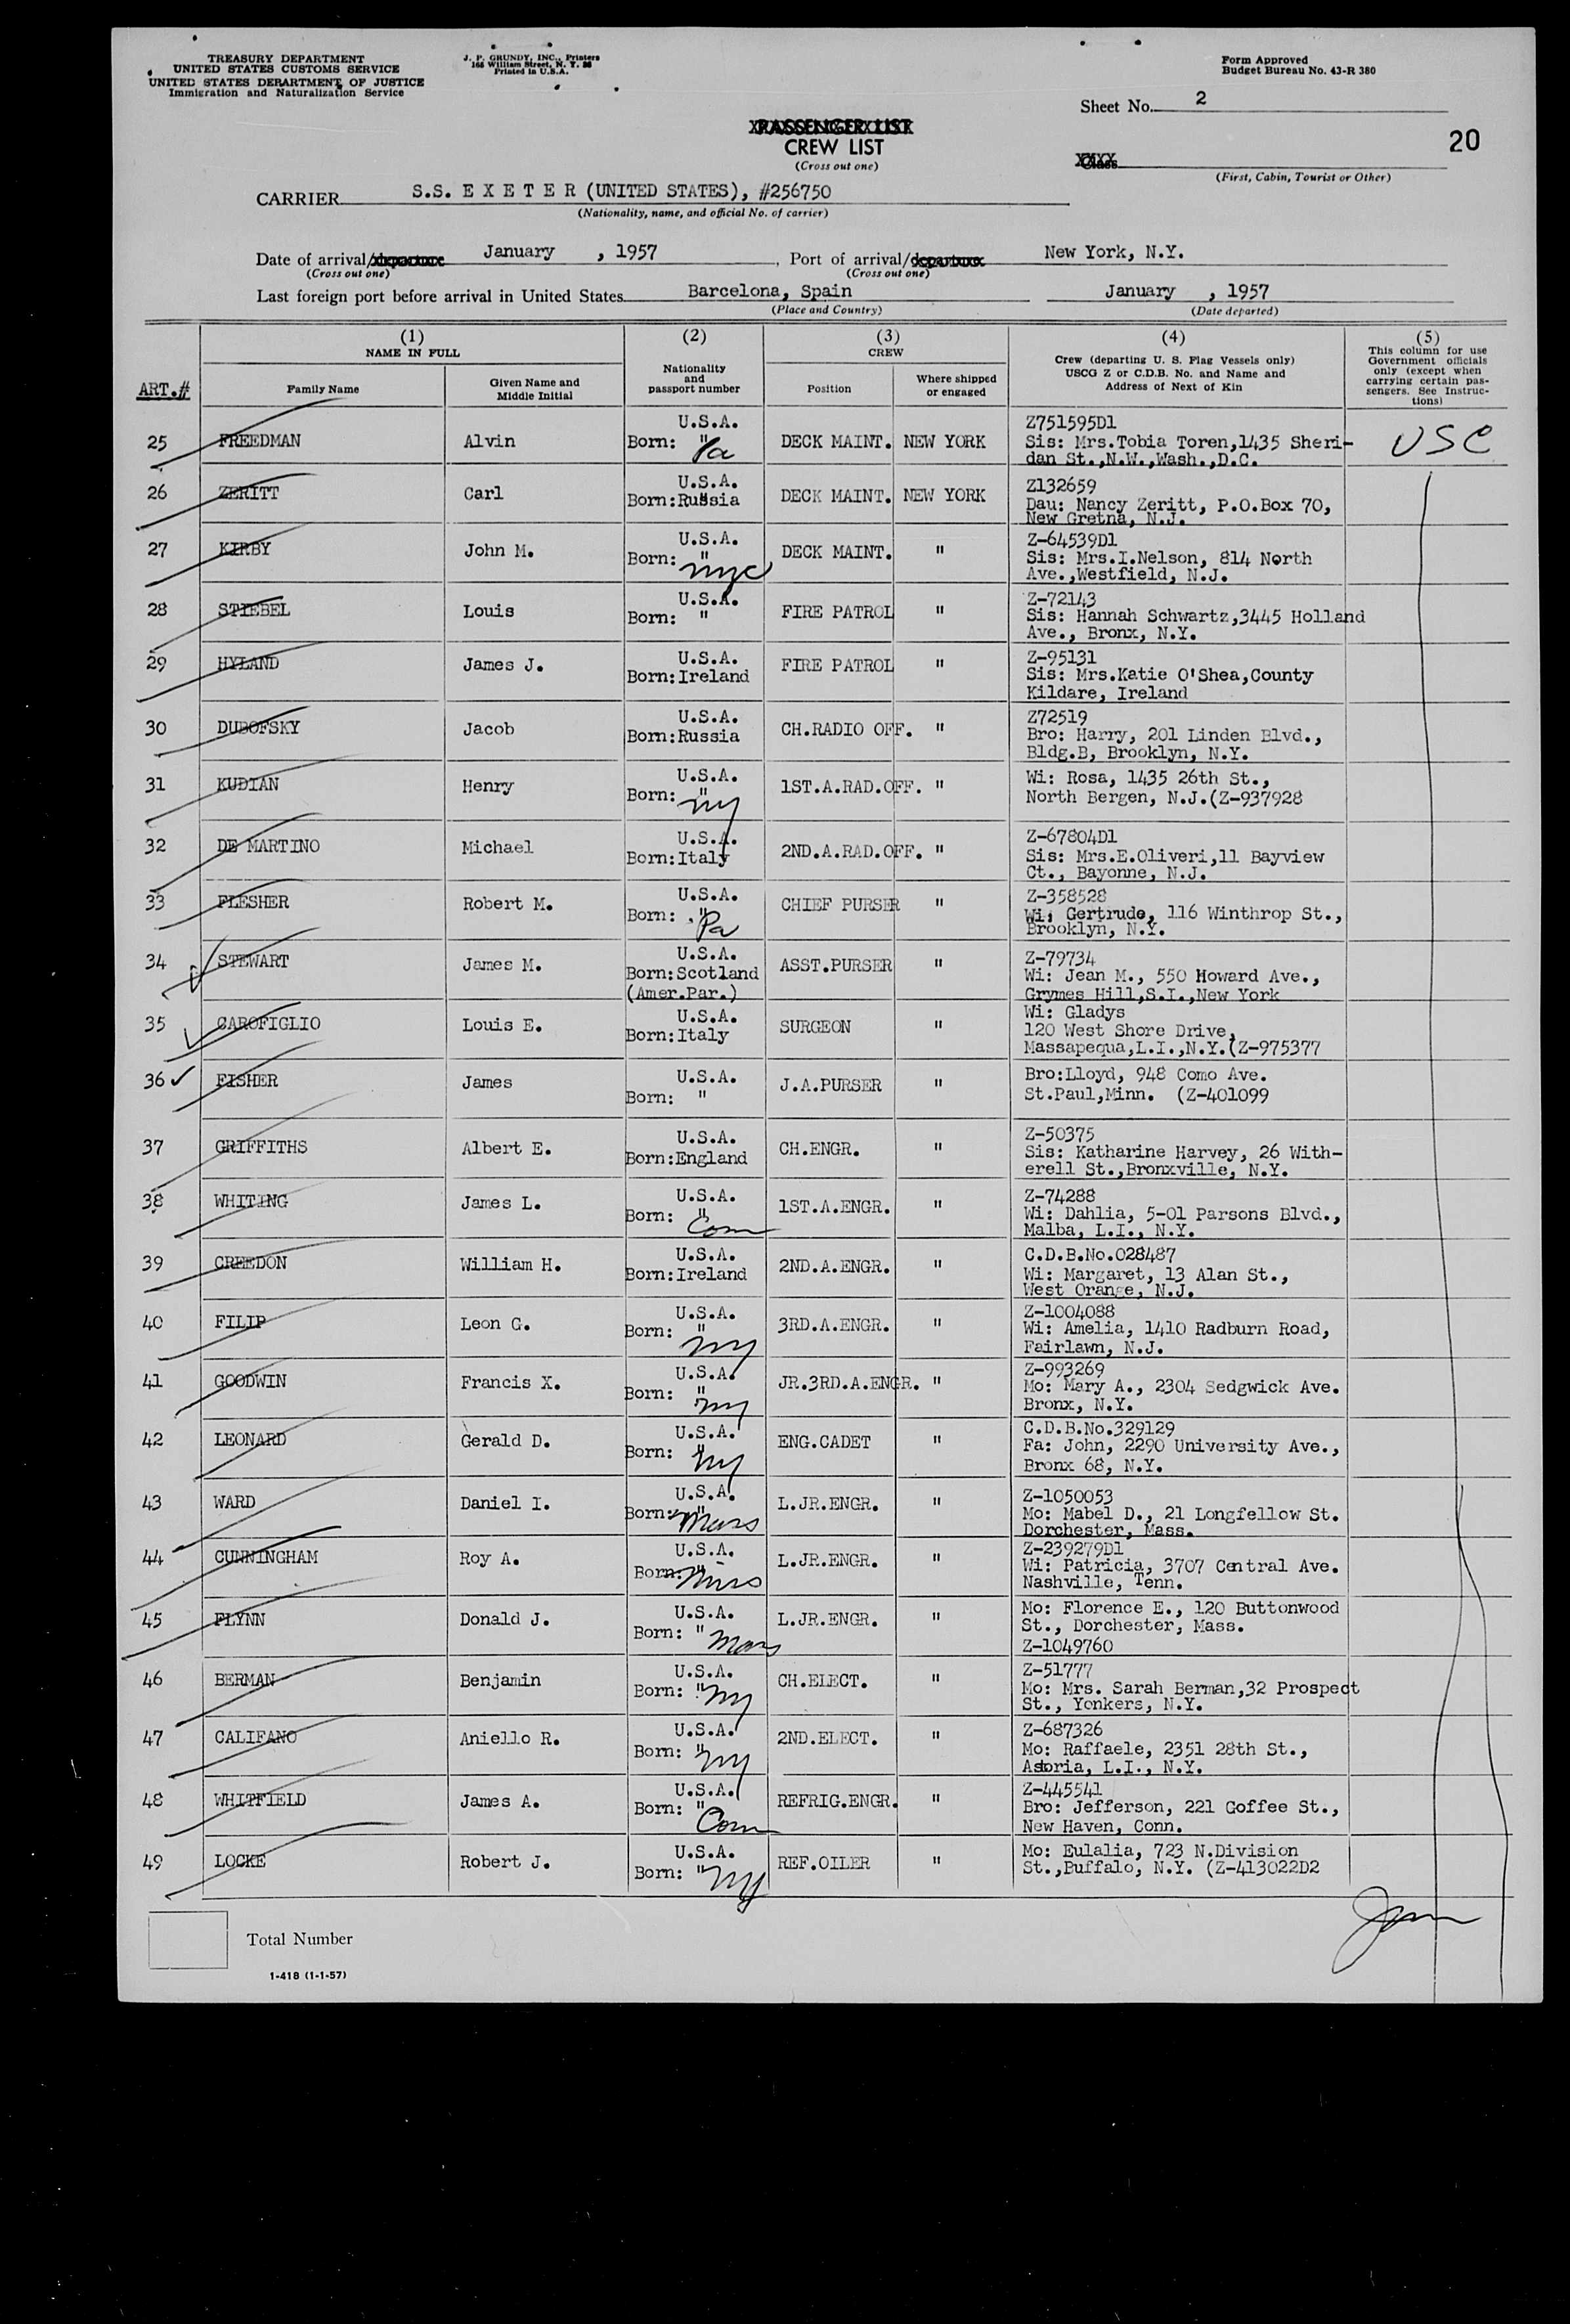 TREASURY DEPARTMENT
UNITED STATES CUSTOMS SERVICE
UNITED STATES DEPARTMENT OF JUSTICE
Immigration and Naturalization Service
J. P. GRUNDY, INC., Printers
168 William Street, N. Y. 38
Printed in U.S.A.
Form Approved
Budget Bureau No. 43-R 380
Sheet No. 2
20
PASSENGER LIST
CREW LIST
(Cross out one)
Class
(First, Cabin, Tourist or Other)
CARRIER S.S. E X E T E R (UNITED STATES), #256750
(Nationality, name, and official No. of carrier)
Date of arrival/departure January , 1957, Port of arrival/departure New York, N.Y.
(Cross out one) (Cross out one)
Last foreign port before arrival in United States Barcelona, Spain January , 1957
(Place and Country) (Date departed)
ART.#
(1) NAME IN FULL
Family Name
Given Name and Middle Initial
(2) Nationality and passport number
(3) CREW
Position
Where shipped or engaged
(4) Crew (departing U. S. Flag Vessels only) USCG Z or C.D.B. No. and Name and Address of Next of Kin
(5) This column for use Government officials only (except when carrying certain passengers. See Instructions)
25 FREEDMAN Alvin U.S.A. Born: " Pa DECK MAINT. NEW YORK Z751595D1 Sis: Mrs.Tobia Toren,1435 Sheri-dan St.,N.W.,Wash.,D.C. USC
26 ZERITT Carl U.S.A. Born:Russia DECK MAINT. NEW YORK Z132659 Dau: Nancy Zeritt, P.O.Box 70, New Gretna, N.J.
27 KIRBY John M. U.S.A. Born: " NYC DECK MAINT. " Z-64539D1 Sis: Mrs.I.Nelson, 814 North Ave.,Westfield, N.J.
28 STIEBEL Louis U.S.A. Born: " FIRE PATROL " Z-72143 Sis: Hannah Schwartz,3445 Holland Ave., Bronx, N.Y.
29 HYLAND James J. U.S.A. Born:Ireland FIRE PATROL " Z-95131 Sis: Mrs.Katie O'Shea,County Kildare, Ireland
30 DUBOFSKY Jacob U.S.A. Born:Russia CH.RADIO OFF. " Z72519 Bro: Harry, 201 Linden Blvd., Bldg.B, Brooklyn, N.Y.
31 KUDIAN Henry U.S.A. Born: " NY 1ST.A.RAD.OFF. " Wi: Rosa, 1435 26th St., North Bergen, N.J.(Z-937928
32 DE MARTINO Michael U.S.A. Born:Italy 2ND.A.RAD.OFF. " Z-67804D1 Sis: Mrs.E.Oliveri,11 Bayview Ct., Bayonne, N.J.
33 FLESHER Robert M. U.S.A. Born: " Pa CHIEF PURSER " Z-358528 Wi: Gertrude, 116 Winthrop St., Brooklyn, N.Y.
34 STEWART James M. U.S.A. Born:Scotland (Amer.Par.) ASST.PURSER " Z-79734 Wi: Jean M., 550 Howard Ave., Grymes Hill,S.I.,New York
35 CAROFIGLIO Louis E. U.S.A. Born:Italy SURGEON " Wi: Gladys 120 West Shore Drive, Massapequa,L.I.,N.Y.(Z-975377
36 FISHER James U.S.A. Born: " J.A.PURSER " Bro:Lloyd, 948 Como Ave. St.Paul,Minn. (Z-401099
37 GRIFFITHS Albert E. U.S.A. Born:England CH.ENGR. " Z-50375 Sis: Katharine Harvey, 26 With-erell St.,Bronxville, N.Y.
38 WHITING James L. U.S.A. Born: " Conn 1ST.A.ENGR. " Z-74288 Wi: Dahlia, 5-01 Parsons Blvd., Malba, L.I., N.Y.
39 CREEDON William H. U.S.A. Born:Ireland 2ND.A.ENGR. " C.D.B.No.028487 Wi: Margaret, 13 Alan St., West Orange, N.J.
40 FILIP Leon G. U.S.A. Born: " NY 3RD.A.ENGR. " Z-1004088 Wi: Amelia, 1410 Radburn Road, Fairlawn, N.J.
41 GOODWIN Francis X. U.S.A. Born: " NY JR.3RD.A.ENGR. " Z-993269 Mo: Mary A., 2304 Sedgwick Ave. Bronx, N.Y.
42 LEONARD Gerald D. U.S.A. Born: " NY ENG.CADET " C.D.B.No.329129 Fa: John, 2290 University Ave., Bronx 68, N.Y.
43 WARD Daniel I. U.S.A. Born: " Mass L.JR.ENGR. " Z-1050053 Mo: Mabel D., 21 Longfellow St. Dorchester, Mass.
44 CUNNINGHAM Roy A. U.S.A. Born: " Miss L.JR.ENGR. " Z-239279D1 Wi: Patricia, 3707 Central Ave. Nashville, Tenn.
45 FLYNN Donald J. U.S.A. Born: " Mass L.JR.ENGR. " Mo: Florence E., 120 Buttonwood St., Dorchester, Mass. Z-1049760
46 BERMAN Benjamin U.S.A. Born: " NY CH.ELECT. " Z-51777 Mo: Mrs. Sarah Berman,32 Prospect St., Yonkers, N.Y.
47 CALIFANO Aniello R. U.S.A. Born: " NY 2ND.ELECT. " Z-687326 Mo: Raffaele, 2351 28th St., Astoria, L.I., N.Y.
48 WHITFIELD James A. U.S.A. Born: " Conn REFRIG.ENGR. " Z-445541 Bro: Jefferson, 221 Goffee St., New Haven, Conn.
49 LOCKE Robert J. U.S.A. Born: " NY REF.OILER " Mo: Eulalia, 723 N.Division St.,Buffalo, N.Y. (Z-413022D2
Total Number
1-418 (1-1-57)